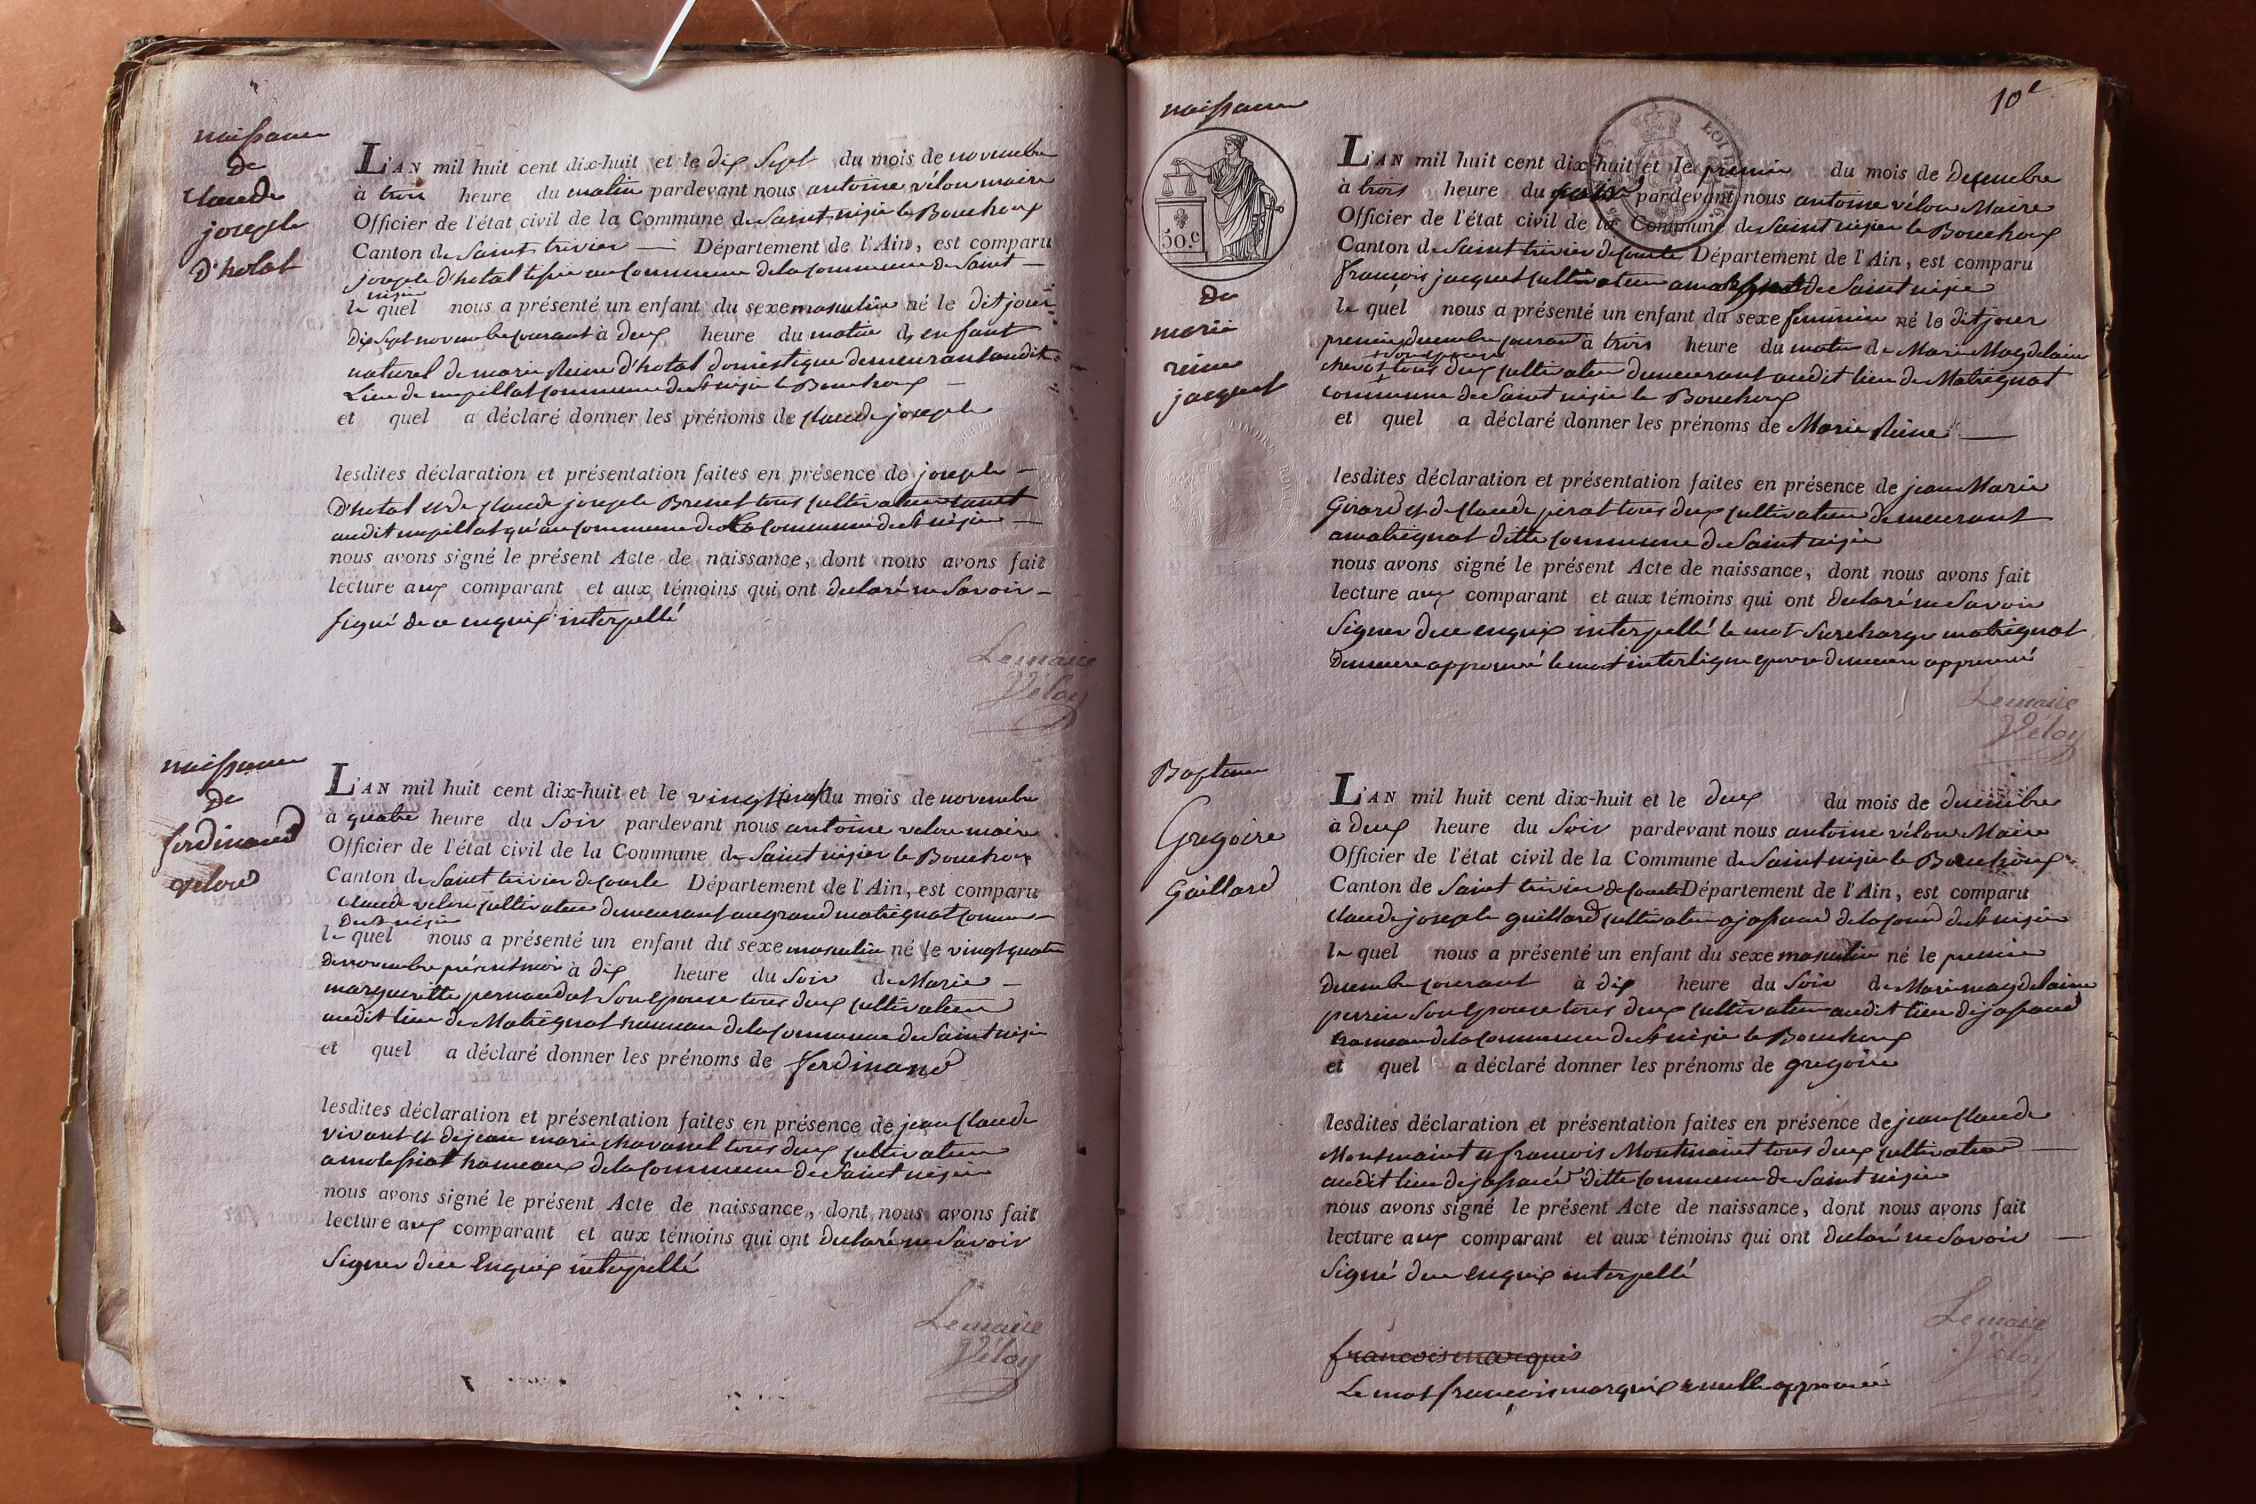 naissance
de
claude
joseph
d'hotal
L'AN mil huit cent dix-huit et le dix sept du mois de novembre
à trois heure du matin pardevant nous antoine vélou maire
Officier de l'état civil de la Commune de Saint nisier le Bouchoux
Canton de Saint trivier — Département de l'Ain, est comparu
joseph d'hotal commune de la commune de Saint —
nisier
le quel nous a présenté un enfant du sexe masculin né le dit jour
dix sept novembre courant à deux heure du matin de enfant
naturel de marie Reine d'hotal domestique demeurant audit
Lieu de commune de St nisier le Bouchoux —
et quel a déclaré donner les prénoms de claude joseph
lesdites déclaration et présentation faites en présence de joseph —
D'hotal et de claude joseph Brunet tous cultivateur tant
audit qu'au commune de la commune de St nisier —
nous avons signé le présent Acte de naissance, dont nous avons fait
lecture aux comparant et aux témoins qui ont declaré ne Savoir —
signé de ce enquis interpellé
Lemaire
Vélou
naissance
de
ferdinand
velou
L'AN mil huit cent dix-huit et le vingt du mois de novembre
à quatre heure du Soir pardevant nous antoine velou maire
Officier de l'état civil de la Commune de Saint nisier le Bouchoux
Canton de Saint trivier de courte Département de l'Ain, est comparu
claude velou cultivateur demeurant au grand matregnat comune —
De St nisier
le quel nous a présenté un enfant du sexe masculin né le vingt quatre
de novembre présent mois à dix heure du Soir de Marie —
margueritte Son Epouse tous deux cultivateur
audit lieu de Matregnat hameau de la commune de Saint nisier
et quel a déclaré donner les prénoms de ferdinand
lesdites déclaration et présentation faites en présence de jean claude
vivant et de jean marie chavanel tous deux cultivateur
a hameaux de la commune de Saint nisier
nous avons signé le présent Acte de naissance, dont nous avons fait
lecture aux comparant et aux témoins qui ont declaré ne Savoir
Signer de ce Enquis interpellé
Lemaire
Vélou
10e
naissance
50.c
de
marie
reine
jacquet
L'AN mil huit cent dix-huit et le premier du mois de decembre
à trois heure du pardevant nous antoine vélou Maire
Officier de l'état civil de la Commune de Saint nisier le Bouchoux
Canton de Saint trivier de courte Département de l'Ain, est comparu
françois jacquet cultivateur a matregnat de Saint nisier
le quel nous a présenté un enfant du sexe feminin né le dit jour
premier decembre courant à trois heure du matin de Marie Magdelaine
son epouse
tous deux cultivateur demeurant audit lieu de Matregnat
commune de Saint nisier le Bouchoux
et quel a déclaré donner les prénoms de Marie Reine —
lesdites déclaration et présentation faites en présence de jean Marie
Girard et de claude perat tous deux cultivateur demeurant
a matregnat ditte commune de Saint nisier
nous avons signé le présent Acte de naissance, dont nous avons fait
lecture aux comparant et aux témoins qui ont declaré ne Savoir
Signer de ce enquis interpellé le mot Surchargé matregnat
demeure approuvé le mot interligne epouse demeure approuvé
Lemaire
Vélou
Bapteme
Gregoire
Gaillard
L'AN mil huit cent dix-huit et le deux du mois de decembre
à deux heure du Soir pardevant nous antoine vélou Maire
Officier de l'état civil de la Commune de Saint nisier le Bouchoux
Canton de Saint trivier de Courte Département de l'Ain, est comparu
claude joseph guillard cultivateur a de la comd de St nisier
le quel nous a présenté un enfant du sexe masculin né le premier
decembre courant à dix heure du Soir de Marie magdelaine
perrin Son Epouse tous deux cultivateur audit lieu de
hameau de la commune de St nisier le Bouchoux
et quel a déclaré donner les prénoms de gregoire
lesdites déclaration et présentation faites en présence de jean claude
Montmaint et françois Montmaint tous deux cultivateur —
audit lieu de ditte commune de Saint nisier
nous avons signé le présent Acte de naissance, dont nous avons fait
lecture aux comparant et aux témoins qui ont declaré ne Savoir —
Signé de ce enquis interpellé
Lemaire
Vélou
francois marquis
Le mot françois marquis nulle approuvé